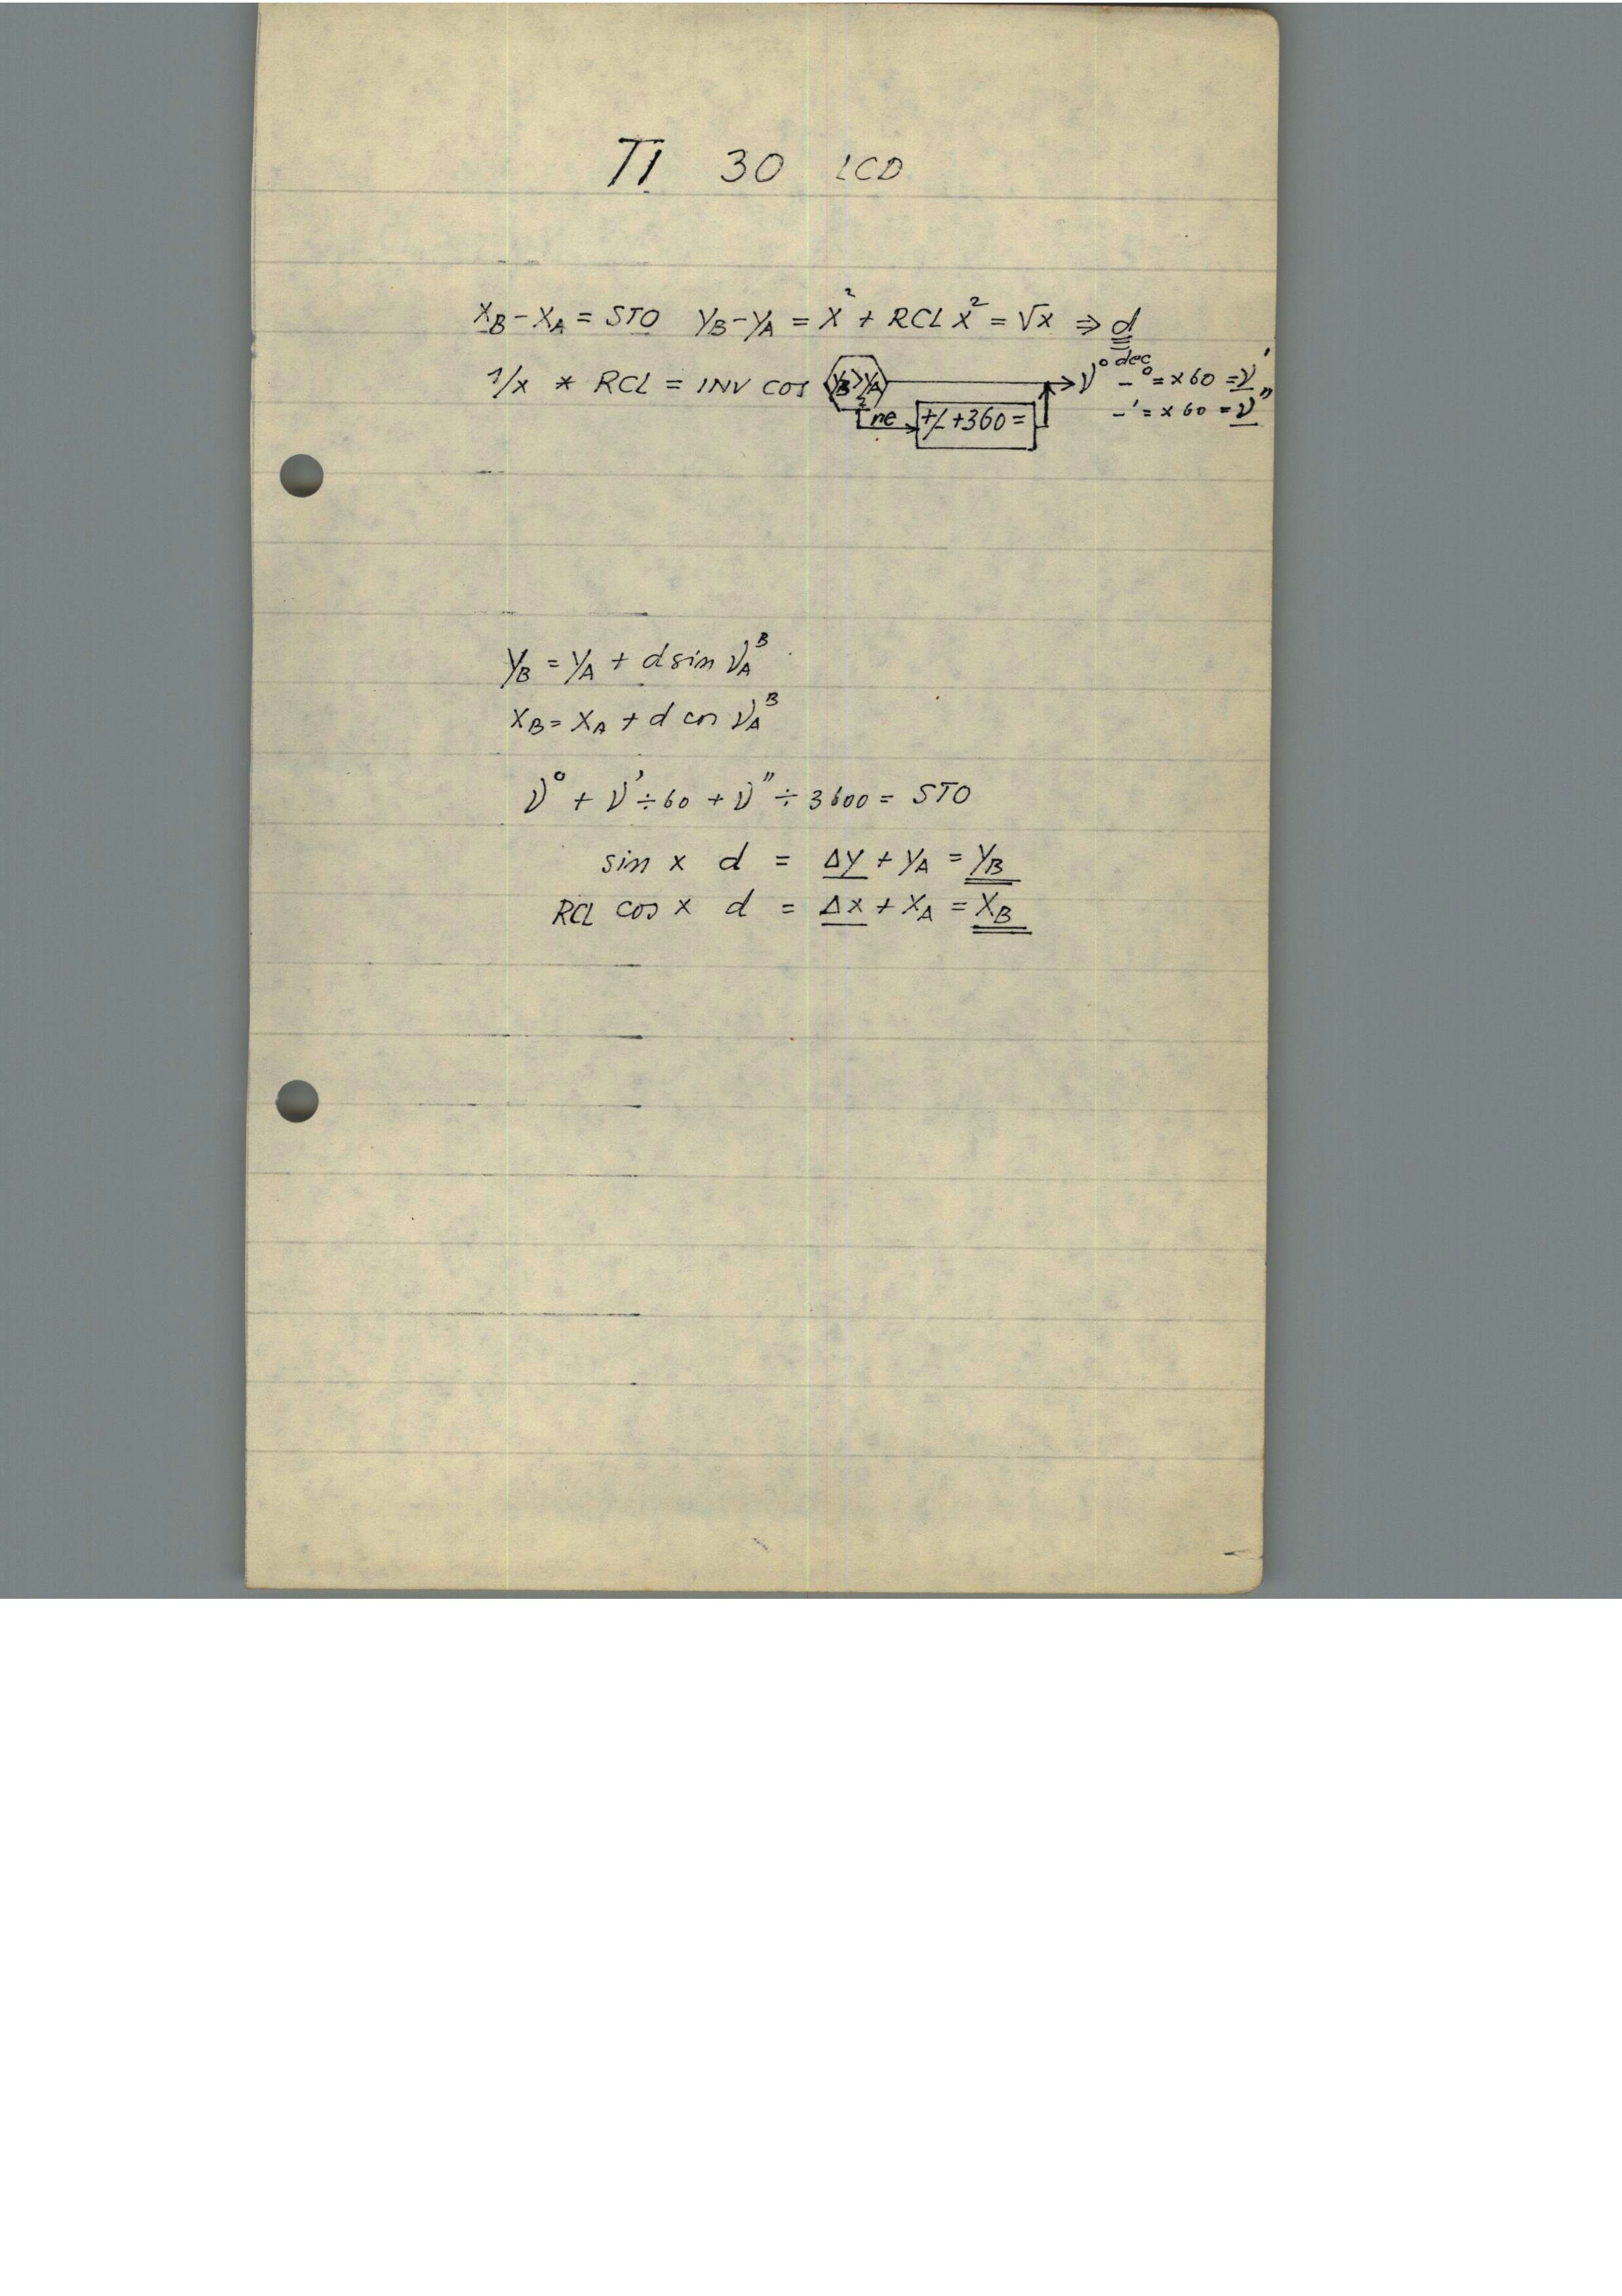 TI 30 LCD
x_B - x_A = STO y_B - y_A = x² + RCL x² = √x ⇒ d
1/x * RCL = INV cos y_B > y_A ? → ν° dec - ° = x 60 = ν'
ne → +/- +360 = - ' = x 60 = ν"
y_B = y_A + d sin ν_A^B
x_B = x_A + d cos ν_A^B
ν° + ν' ÷ 60 + ν" ÷ 3600 = STO
sin x d = Δy + y_A = y_B
RCL cos x d = Δx + x_A = x_B